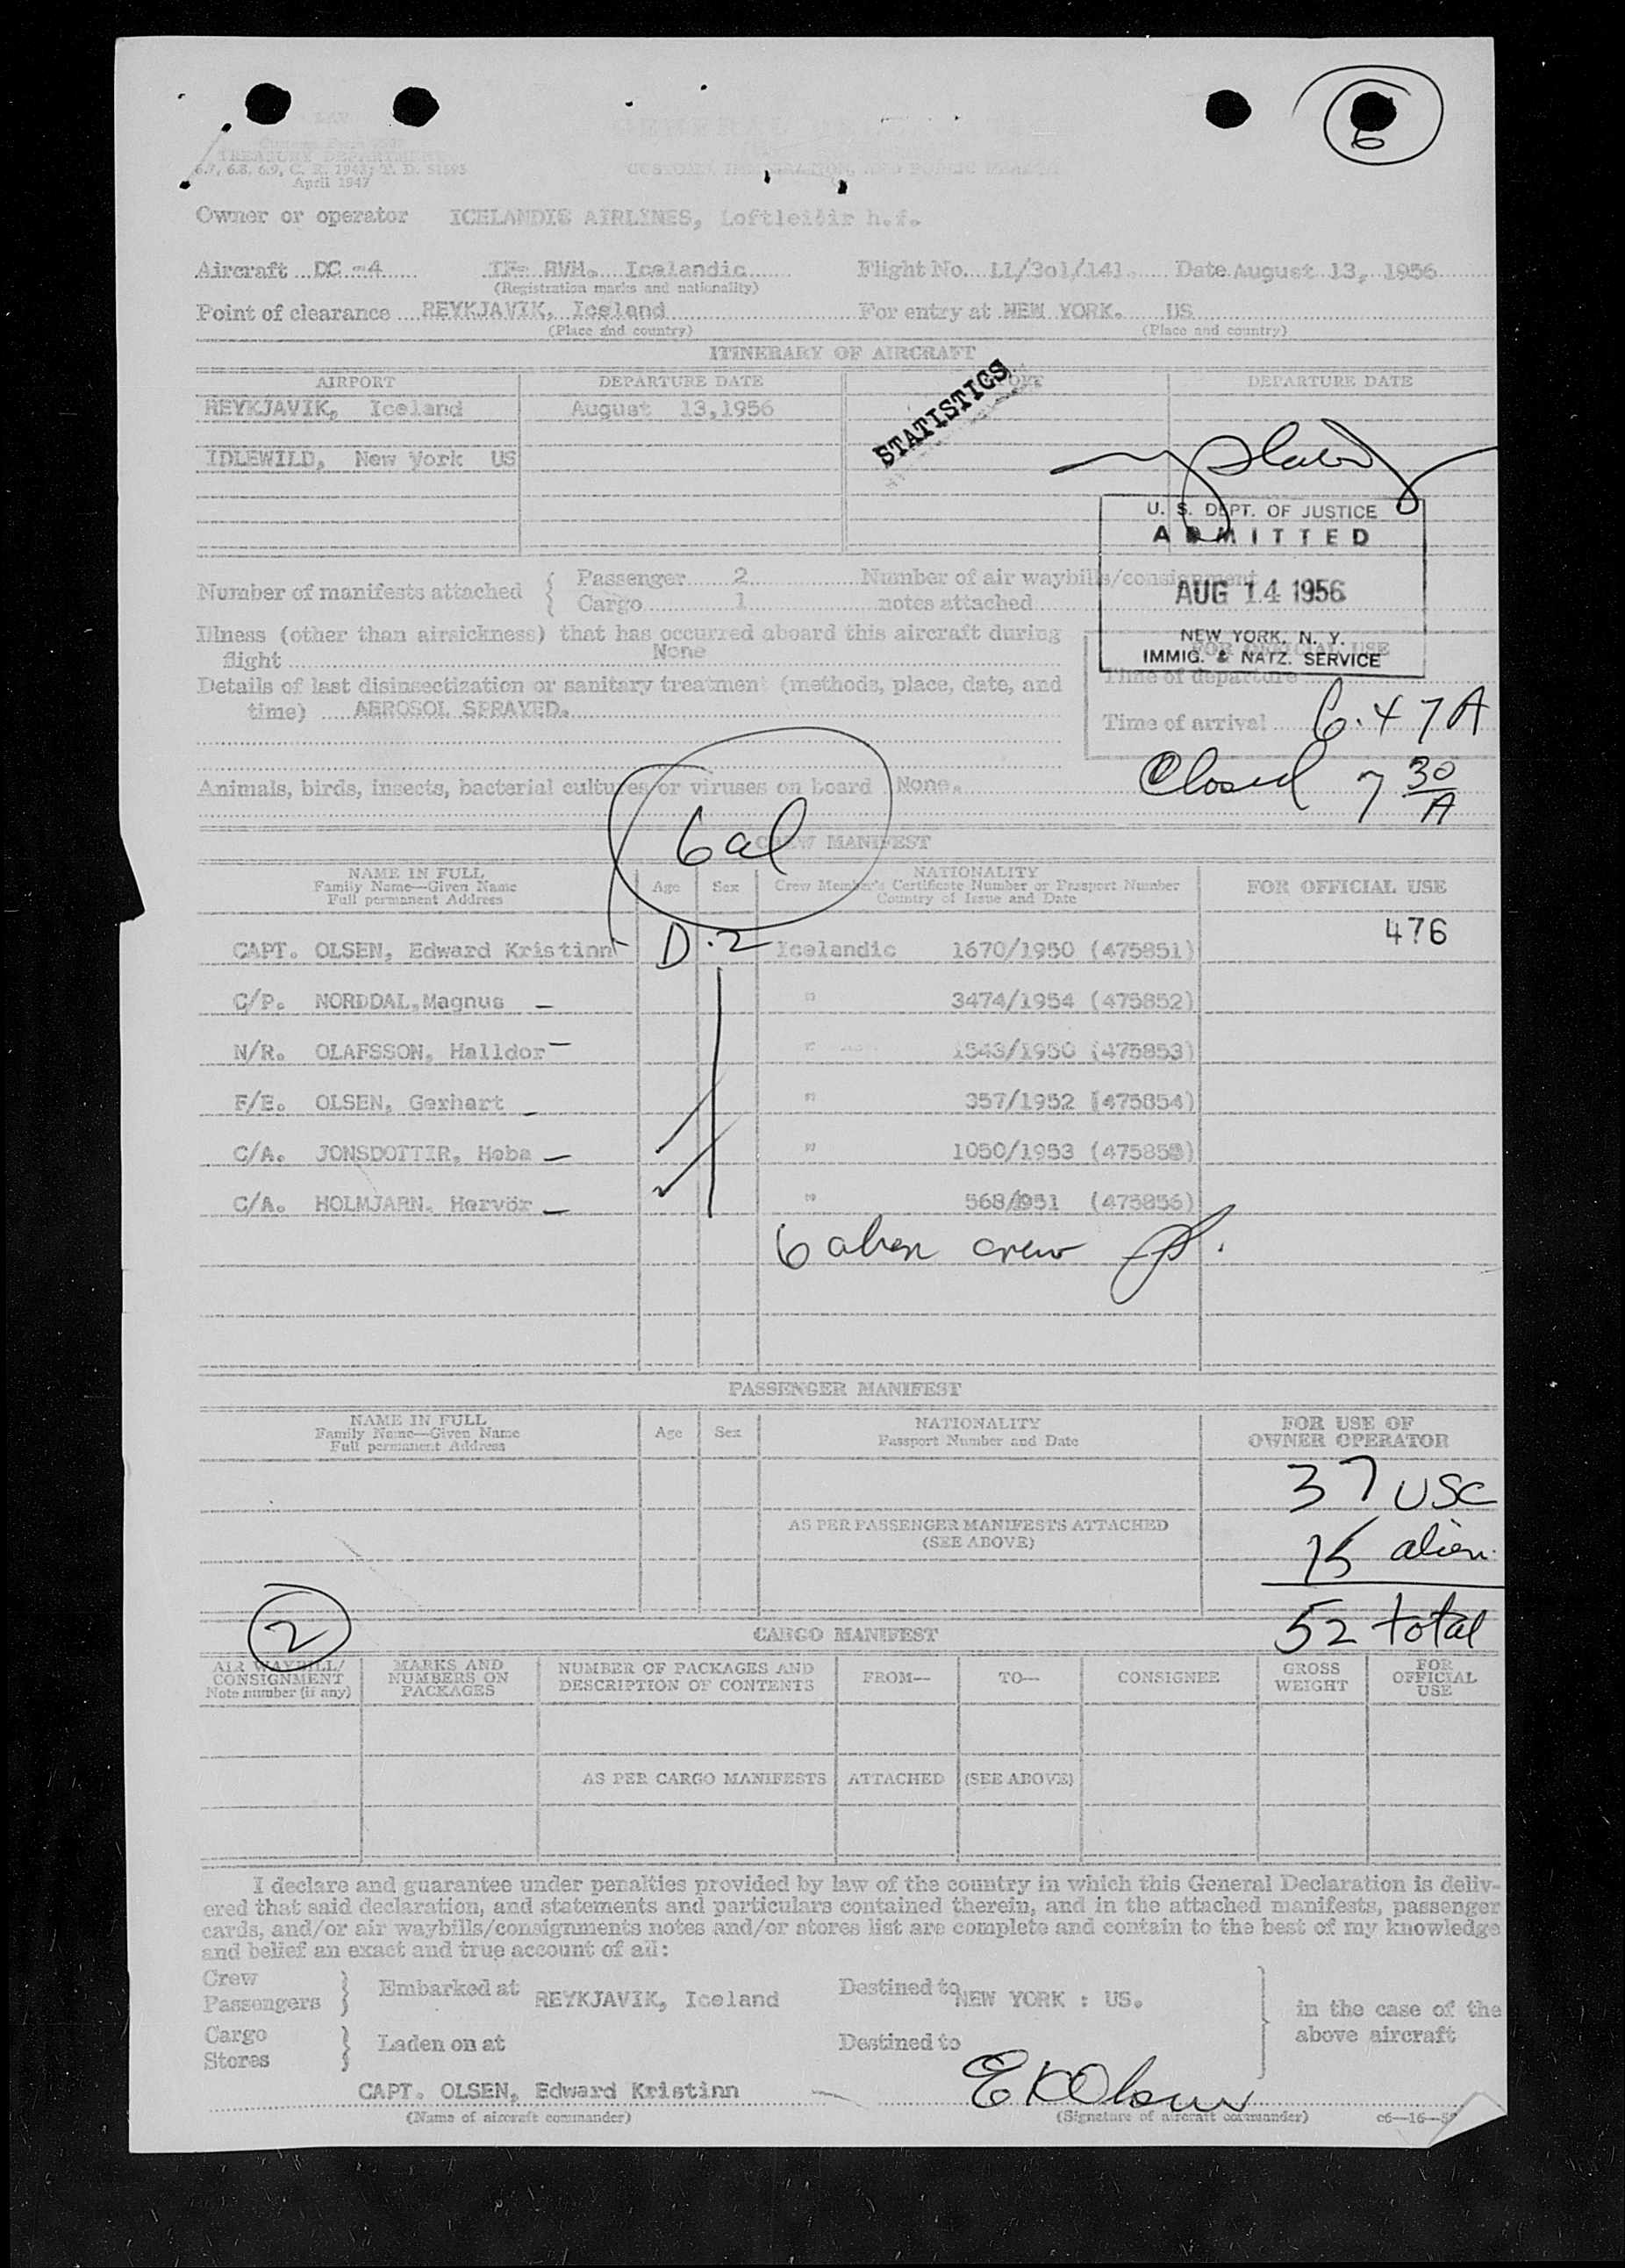 6
TREASURY DEPARTMENT
6.7, 6.8, 6.9, C. R. 1943; T. D. 51595
April 1947
CUSTOMS, IMMIGRATION, AND PUBLIC HEALTH
Owner or operator ICELANDIC AIRLINES, Loftleiðir h.f.
Aircraft DC -4 TF- RVH. Icelandic Flight No. LL/3o1/141. Date August 13, 1956
(Registration marks and nationality)
Point of clearance REYKJAVIK, Iceland For entry at NEW YORK. US
(Place and country) (Place and country)
ITINERARY OF AIRCRAFT
AIRPORT DEPARTURE DATE DEPARTURE DATE
STATISTICS
REYKJAVIK, Iceland August 13,1956
IDLEWILD, New York US
U. S. DEPT. OF JUSTICE
ADMITTED
AUG 14 1956
NEW YORK, N. Y.
IMMIG. & NATZ. SERVICE
Number of manifests attached { Passenger 2 Number of air waybills/consignment
Cargo 1 notes attached
Illness (other than airsickness) that has occurred aboard this aircraft during
flight None
FOR OFFICIAL USE
Details of last disinsectization or sanitary treatment (methods, place, date, and
time) AEROSOL SPRAYED.
Time of departure
Time of arrival 6.47A
Closed 7 30/A
Animals, birds, insects, bacterial cultures or viruses on board None.
6 al
CREW MANIFEST
NAME IN FULL
Family Name—Given Name
Full permanent Address
Age Sex
NATIONALITY
Crew Member's Certificate Number or Passport Number
Country of Issue and Date
FOR OFFICIAL USE
476
CAPT. OLSEN, Edward Kristinn D.2 Icelandic 1670/1950 (475851)
C/P. NORDDAL,Magnus - " 3474/1954 (475852)
N/R. OLAFSSON, Halldor - " 1543/1950 (475853)
F/E. OLSEN, Gerhart - " 357/1952 (475854)
C/A. JONSDOTTIR, Heba - " 1050/1953 (475855)
C/A. HOLMJARN, Hervör - " 568/1951 (475856)
6 alien crew
PASSENGER MANIFEST
NAME IN FULL
Family Name—Given Name
Full permanent Address
Age Sex
NATIONALITY
Passport Number and Date
FOR USE OF
OWNER OPERATOR
37 USC
AS PER PASSENGER MANIFESTS ATTACHED
(SEE ABOVE)
15 alien
52 total
2
CARGO MANIFEST
AIR WAYBILL/
CONSIGNMENT
Note number (if any)
MARKS AND
NUMBERS ON
PACKAGES
NUMBER OF PACKAGES AND
DESCRIPTION OF CONTENTS
FROM— TO— CONSIGNEE
GROSS
WEIGHT
FOR
OFFICIAL
USE
AS PER CARGO MANIFESTS ATTACHED (SEE ABOVE)
I declare and guarantee under penalties provided by law of the country in which this General Declaration is deliv-
ered that said declaration, and statements and particulars contained therein, and in the attached manifests, passenger
cards, and/or air waybills/consignments notes and/or stores list are complete and contain to the best of my knowledge
and belief an exact and true account of all:
Crew
Passengers } Embarked at REYKJAVIK, Iceland Destined to NEW YORK : US.
in the case of the
above aircraft
Cargo
Stores } Laden on at Destined to
CAPT. OLSEN, Edward Kristinn EKOlsen
(Name of aircraft commander) (Signature of aircraft commander) c6—16—5